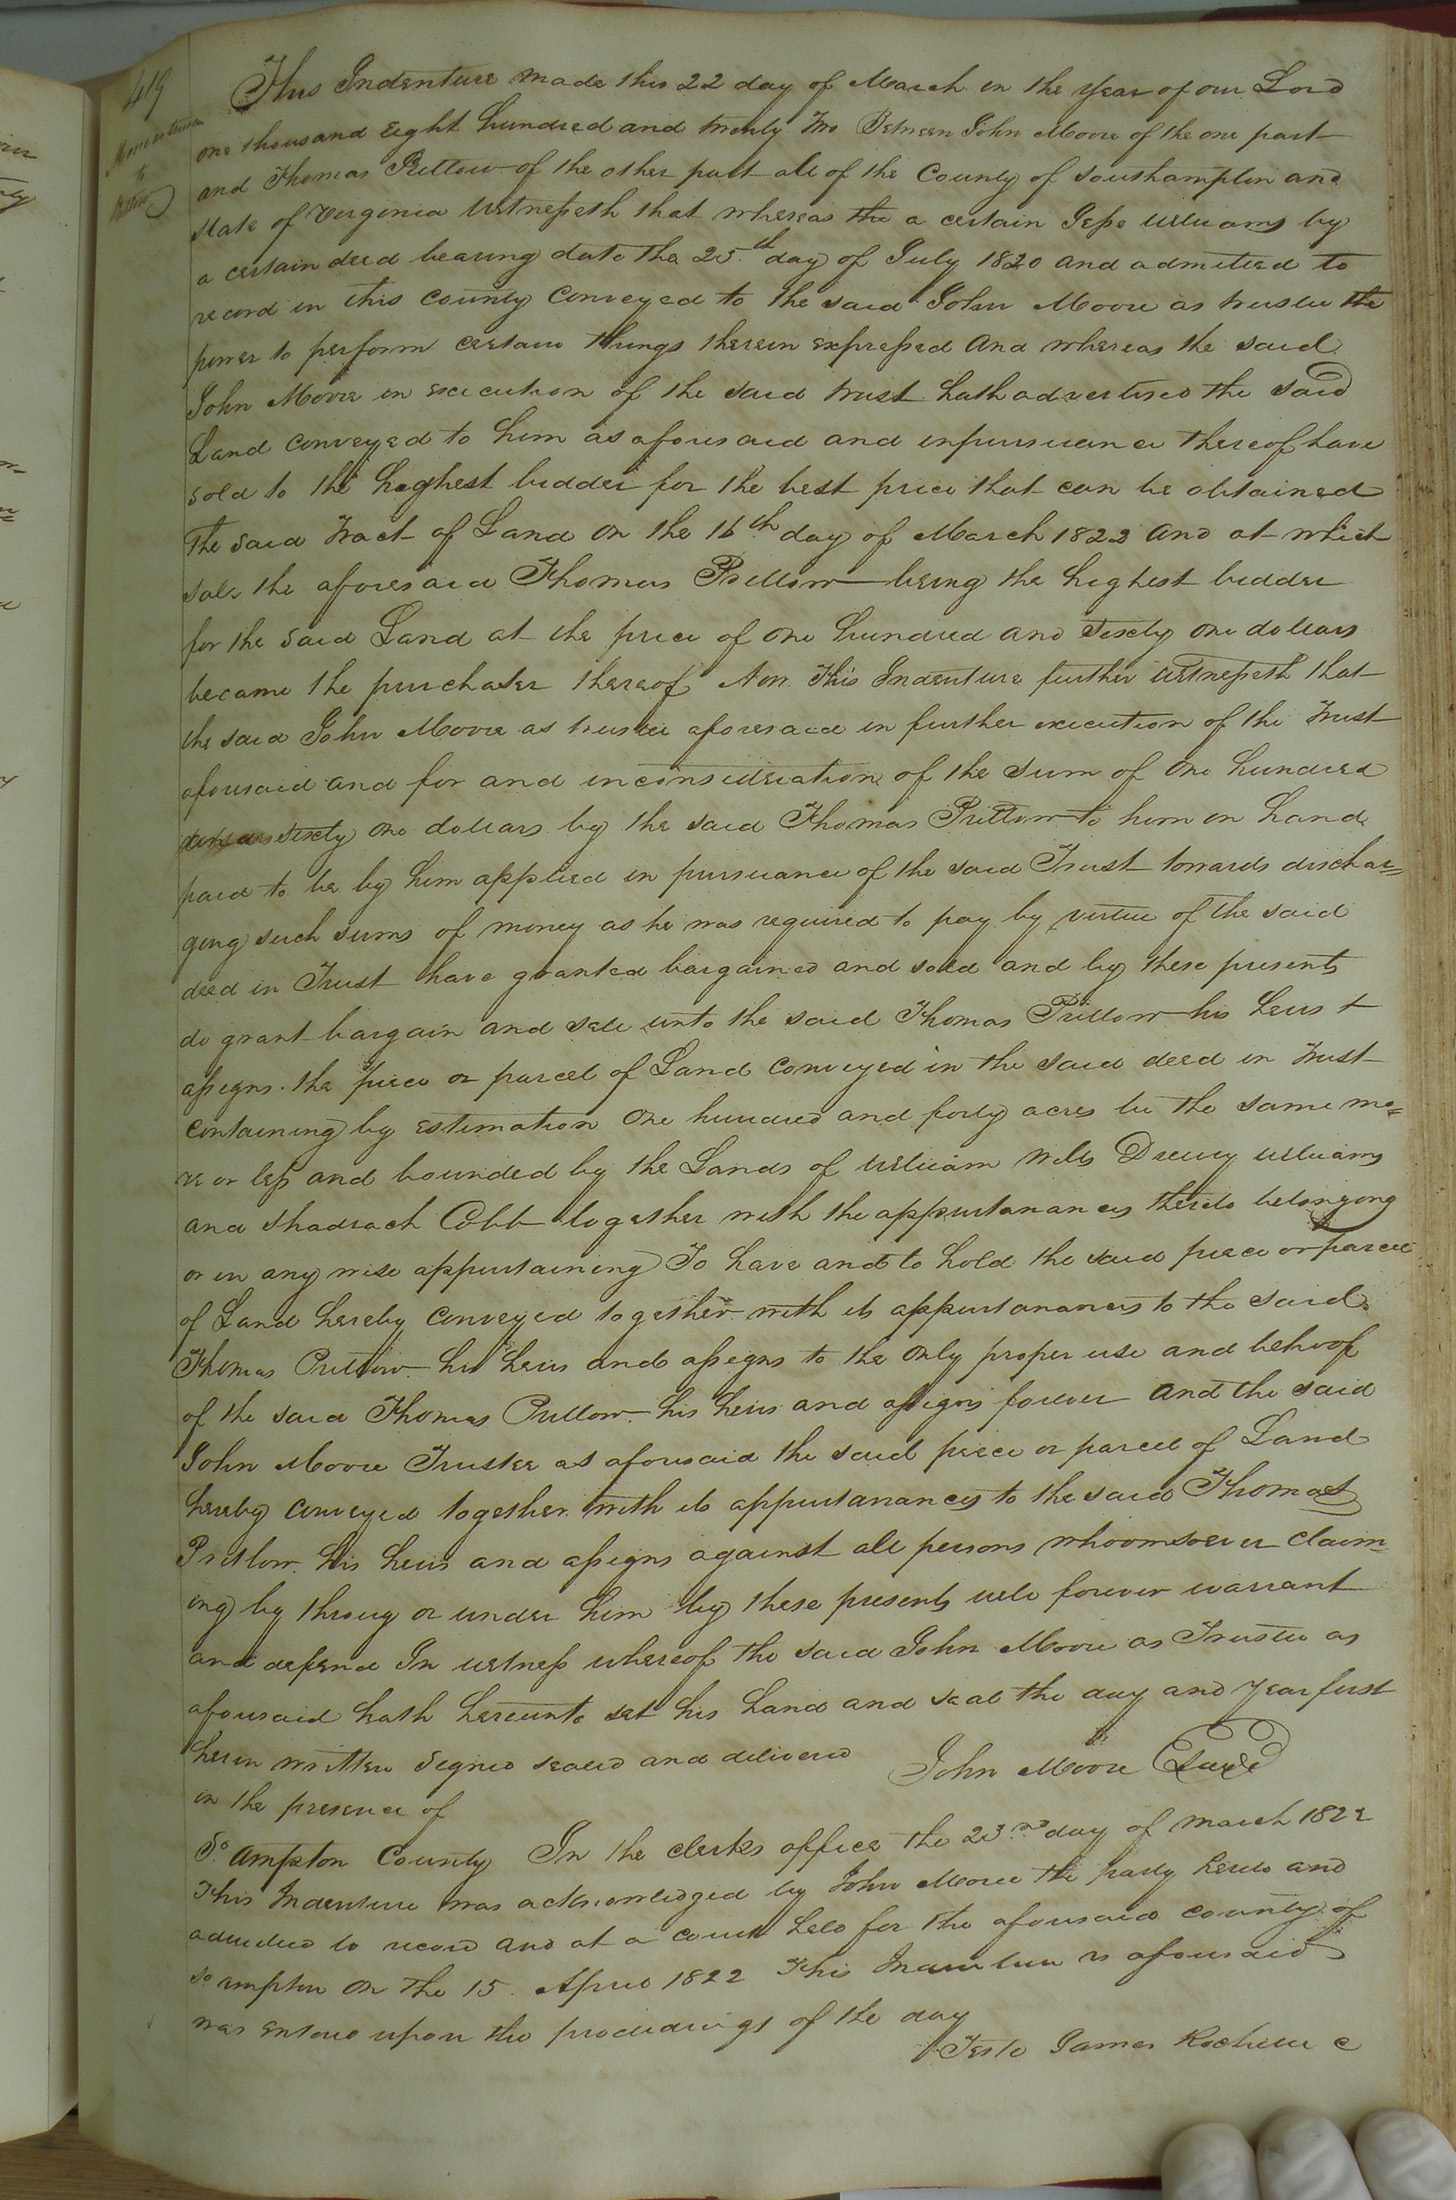 419
Moore trustee
to
Pretlow
This Indenture made this 22 day of March in the year of our Lord
one thousand Eight hundred and twenty two Between John Moore of the one part
and Thomas Pretlow of the other part all of the County of Southampton and
State of Virginia Witnesseth that whereas the a certain Jesse Williams by
a certain deed bearing date the 25th day of July 1820 and admitted to
record in this county conveyed to the said John Moore as trustee the
power to perform certain things therein expressed and whereas the said
John Moore in execution of the said trust hath advertised the said
Land conveyed to him as aforesaid and inpursuance thereof have
sold to the highest bidder for the best price that can be obtained
The said Tract of Land on the 16th day of March 1822 and at which
sale the aforesaid Thomas Pretlow being the highest bidder
for the said Land at the price of one hundred and Sixty one dollars
became the purchaser thereof Now This Indenture further witnesseth that
the said John Moore as trustee aforesaid in further execution of the Trust
aforesaid and for and inconsideration of the Sum of one hundred
sixty one dollars by the said Thomas Pretlow to him in hand
paid to be by him applied in pursuance of the said Trust towards dischar=
ging such sums of money as he was required to pay by virtue of the said
deed in Trust have granted bargained and sold and by these presents
do grant bargain and sell unto the said Thomas Pretlow his heirs +
assigns the piece or parcel of Land conveyed in the said deed in Trust
containing by estimation one hundred and forty acres be the same mo=
re or less and bounded by the Lands of William Drewry Williams
and Shadrach Cobb together with the appurtanances thereto belonging
or in any wise appurtaining To have and to hold the said piece or parcel
of Land hereby conveyed together with its appurtanances to the said
Thomas Pretlow his heirs and assigns to the only proper use and behoof
of the said Thomas Pretlow his heirs and assigns forever and the said
John Moore Trustee as aforesaid the said piece or parcel of Land
hereby conveyed together with its appurtanances to the said Thomas
Pretlow his heirs and assigns against all persons whoomsoever claim=
ing by throug or under him by these presents will forever warrant
and defend In witness whereof the said John Moore as Trustee as
aforesaid hath hereunto set his hand and seal the day and year first
herin written Signed sealed and delivered John Moore Seal
in the presence of
So ampton County In the clerks office the 23rd day of March 1822
This Indenture was acknowledged by John Moore the party hereto and
admitted to record and at a court held for the aforesaid county of
So ampton on the 15 April 1822 This Indenture as aforesaid
was entered upon the proceedings of the day
Teste James Rochelle C